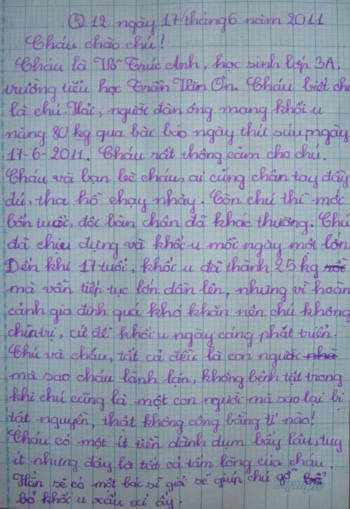 Q 12 ngày 17 tháng 6 năm 2011
Cháu chào chú!
Cháu là Võ Trúc Anh, học sinh lớp 3A,
trường tiểu học Trần Văn Ơn. Cháu biết chú
là chú Hải, người đàn ông mang khối u
nặng 80 kg qua bài báo ngày thứ sáu, ngày
17-6-2011. Cháu rất thông cảm cho chú.
Cháu và bạn bè cháu, ai cũng chân tay đầy
đủ, tha hồ chạy nhảy. Còn chú thì mới
bốn tuổi, đôi bàn chân đã khác thường. Chú
đã chịu đựng và khối u mỗi ngày một lớn.
Đến khi 17 tuổi, khối u đã thành 25 kg
mà vẫn tiếp tục lớn dần lên, nhưng vì hoàn
cảnh gia đình quá khó khăn nên chú không
chữa trị, cứ để khối u ngày càng phát triển.
Chú và cháu, tất cả đều là con người
mà sao cháu lành lặn, không bệnh tật trong
khi chú cũng là một con người mà sao lại bị
tật nguyền, thật không công bằng tí nào!
Cháu có một ít tiền dành dụm bấy lâu, tuy
ít nhưng đây là tất cả tấm lòng của cháu.
Hẳn sẽ có một bác sĩ giỏi sẽ giúp chú gỡ
bỏ khối u xấu xí ấy.